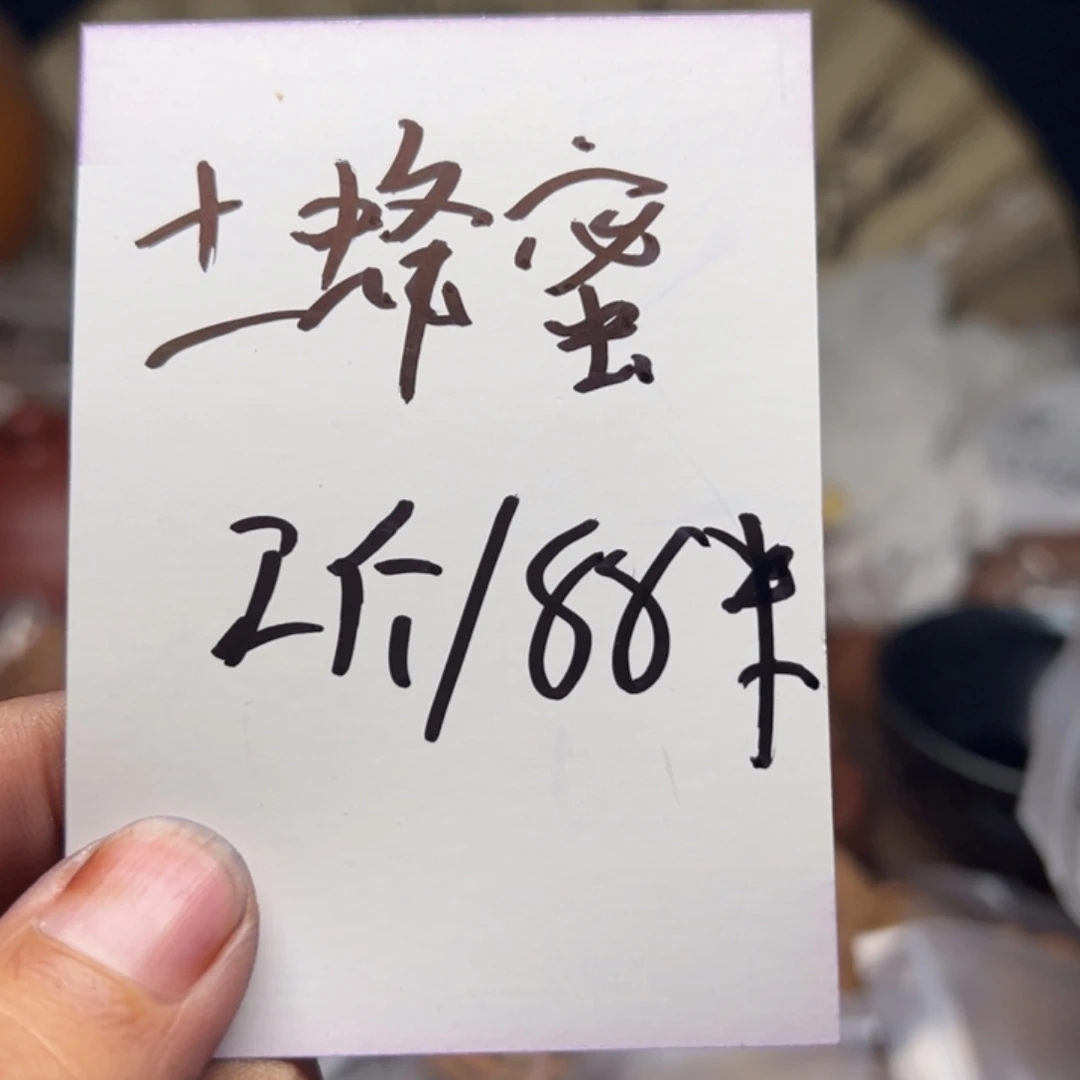 土蜂蜜
2斤/88米